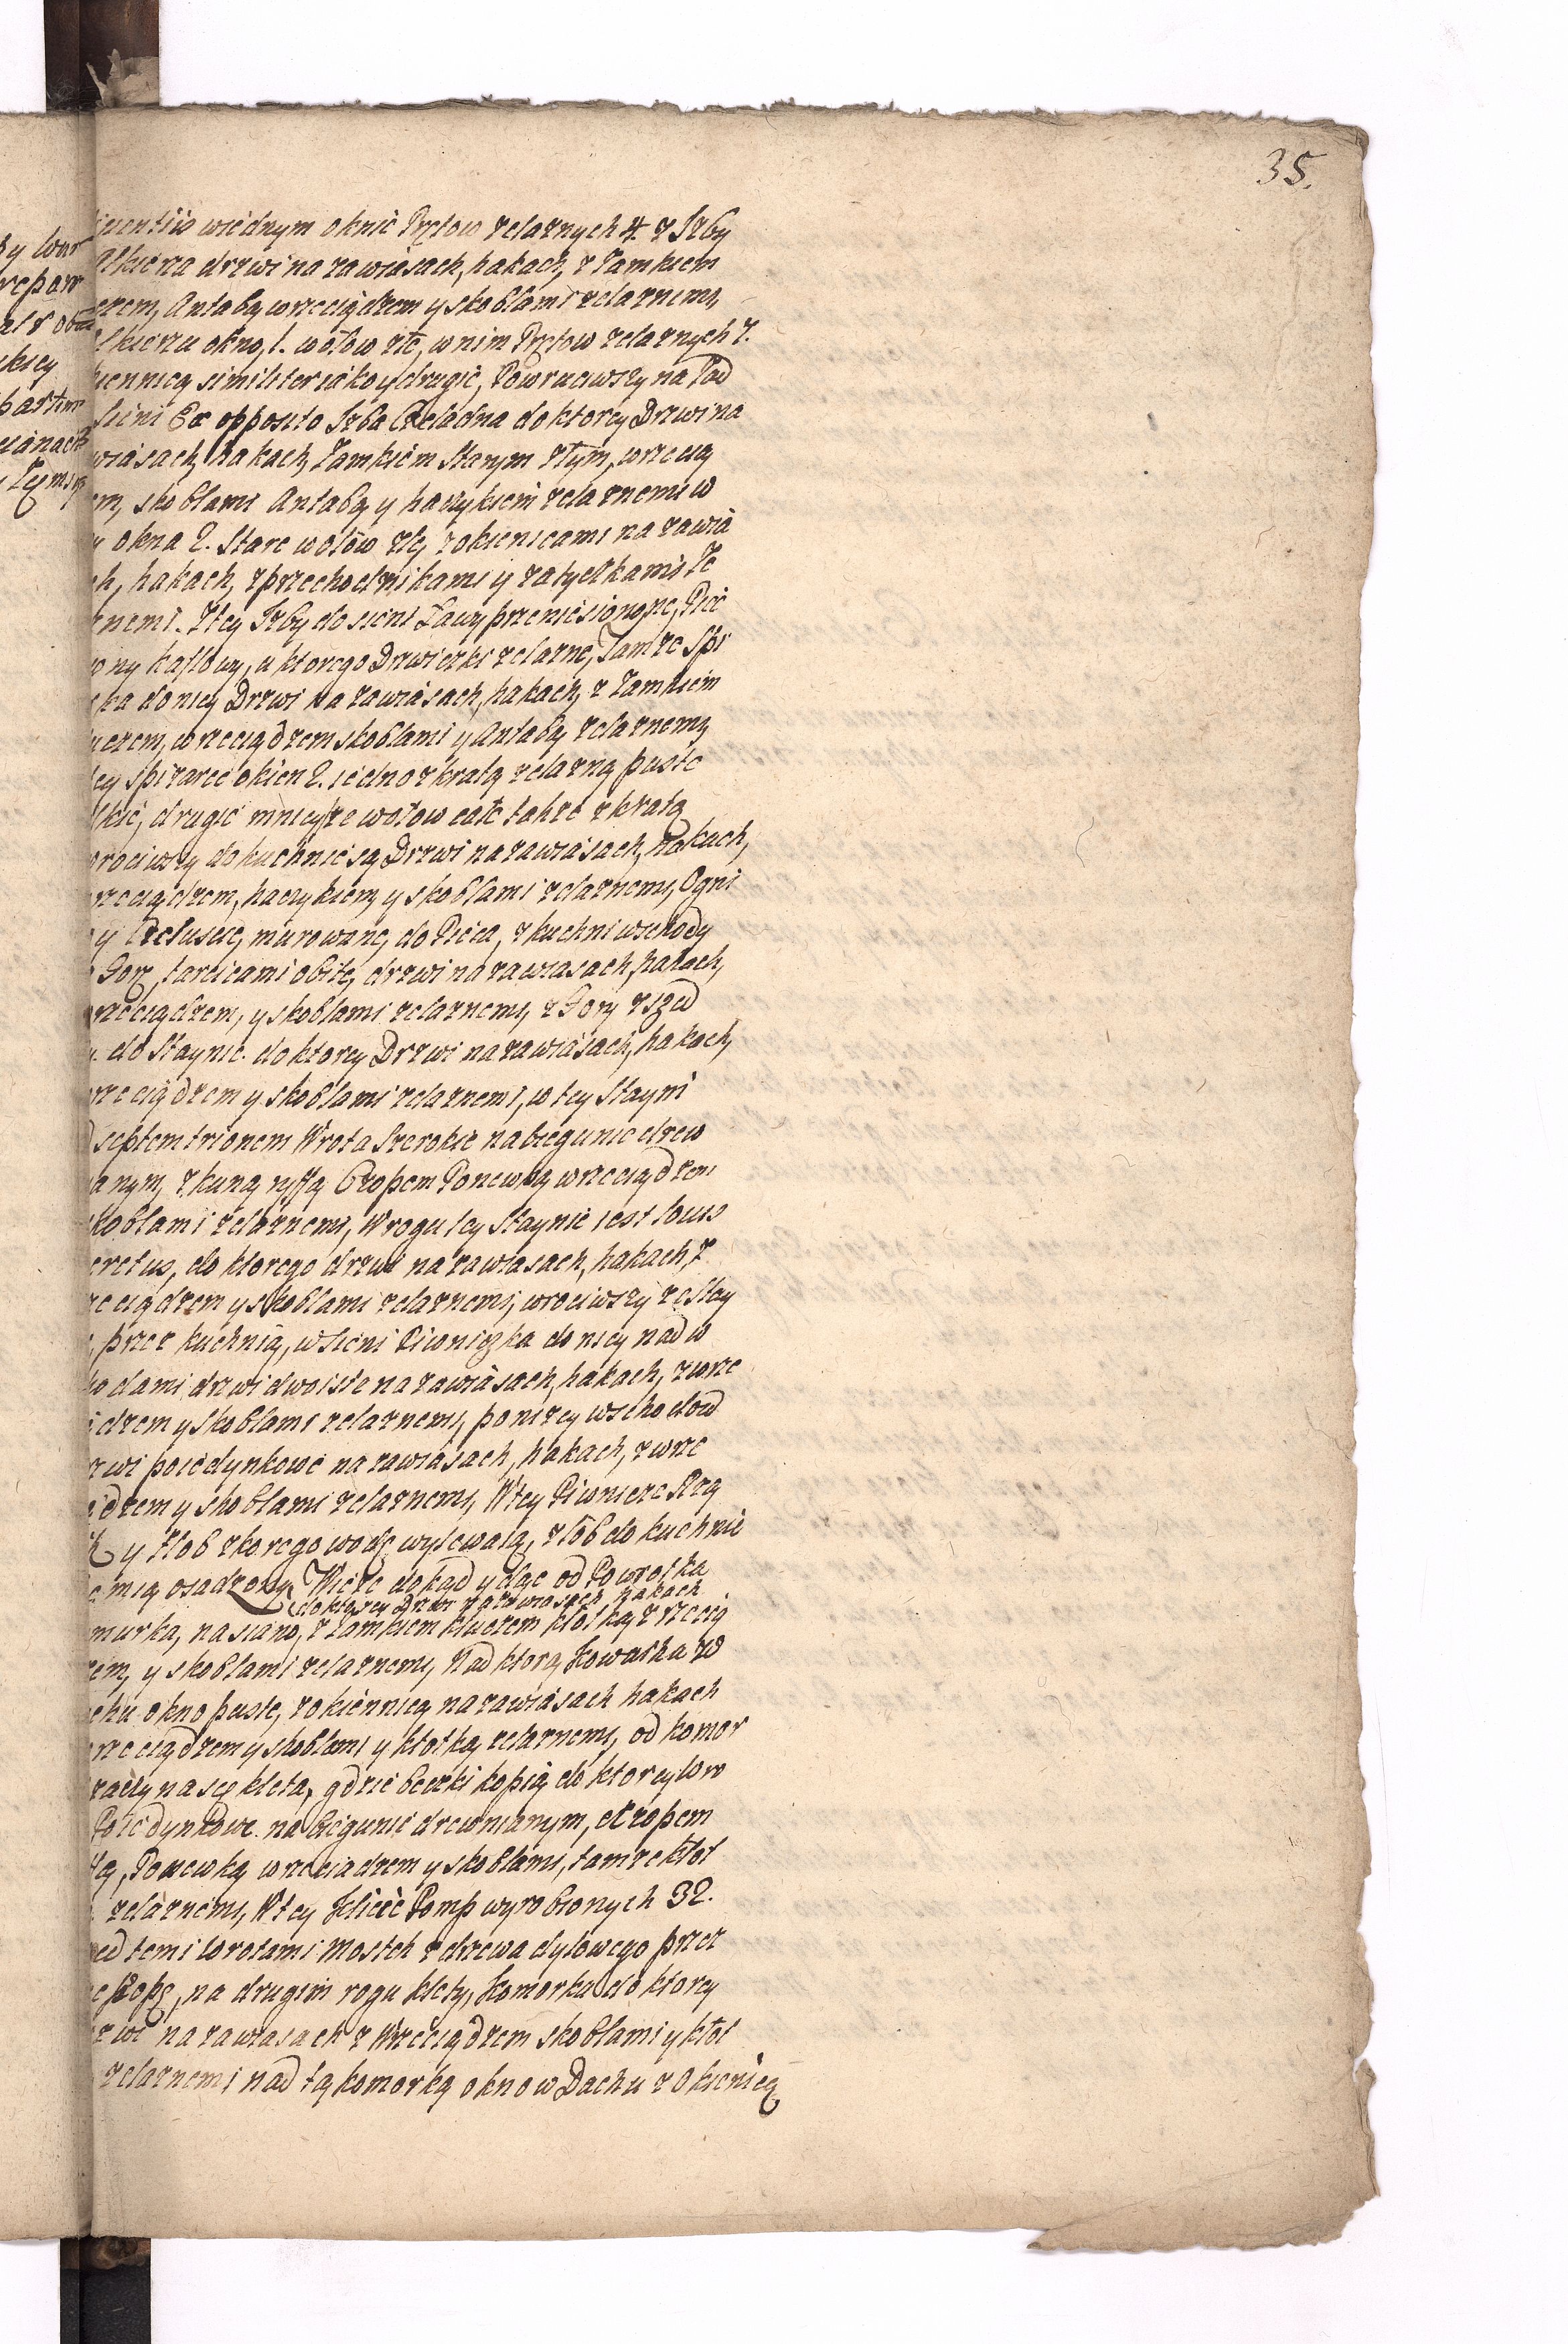 35.
wiednym oknie Prętow zelaznych 4. z Izby
drzwi na zawiasach, hakach, z Zamkiem
Antabą wrzeciądzem y skoblami zelaznemi,
okno, 1. w ołow złe, w nim Prętow zelaznych 7.
similiter iako y drugie, Powruciwszy na Zad
Ex opposito Izba Czeladna do ktorey Drzwi na
wiasach, hakach, Zamkiem starym złym, wrzecią
em, skoblami Antabą y haczykiem zelaznemi w
y okna 2. Stare w ołow złe, z okienicami na zawia
ch, hakach, z przechodnikami y zatyczkami Ze
znemi. Z tey Izby do sieni Ławy przeniesiono, Piec
ny kaflowy, u ktorego Drzwiczki zelazne, Tamze Spi
ka do niey Drzwi na zawiasach, hakach, z Zamkiem
uczem, wrzeciądzem skoblami y Antabą zelaznemi,
tey spizarce okien 2. iedno z kratą zelazną puste
kie, drugie mnieysze w ołow całe takze z kratą
wrociwszy do kuchnie są Drzwi na zawiasach, hakach,
rzeciądzem, haczykiem, y skoblami zelaznemi, Ogni
y murowane, do Pieca, z kuchni wschody
Gorę tarcicami obite, drzwi na zawiasach, hakach,
rzeciądzem, y skoblami zelaznemi, z Gory zszed
do Staynie. do ktorey Drzwi na zawiasach, hakach,
rzeciądzem y skoblami zelaznemi, w tey Stayni
septemtrionem Wrota Szerokie na biegunie drew
anym, z kuną ryffą Czopem Panewką wrzeciądzem
skoblami zelaznemi, W rogu tey Staynie iest locus
cretus, do ktorego drzwi na zawiasach, hakach, z
rzeciądzem y skoblami zelaznemi, wrociwszy ze Stay
przez kuchnią, w sieni Piwniczka do niey nad w
o dami drzwi dwoiste na zawiasach, hakach, z wrze
dzem y skoblami zelaznemi, ponizey wschodow
rzwi poiedynkowe na zawiasach, hakach, z wrze
dzem y skoblami zelaznemi, W tey Piwnicze Rzą
y Złob z korego wodę wylewaią, złob do kuchnie
mią osadzony, Wieże dokąd ydąc od Powrotka
do ktorey Drzwi na zawiasach hakach
murka, na siano, z Zamkiem kluczem kłotką z rzecią
em, y skoblami zelaznemi, Nad ktorą Kowalka w
chu okno puste, z okiennicą na zawiasach hakach
rzeciądzem y skoblami y kłotką zelaznemi, od komor
zaczyna sę kleta, gdzie beczki kopią do ktorey wro
Poiedynkowe. na biegunie drewnianym, Czopem
Panewką wrzeciadzem y skoblami, tamze kłot
zelaznemi, W tey Klicie Pomp wyrobionych 32.
zed temi Wrotami Mostek z drzewa dylowego przez
na drugim rogu klety, Komorka do ktorey
rzwi na zawiasach z Wrzeciądzem skoblami y kłot
zelaznemi nad tą komorką okno w Dachu z Okienicą